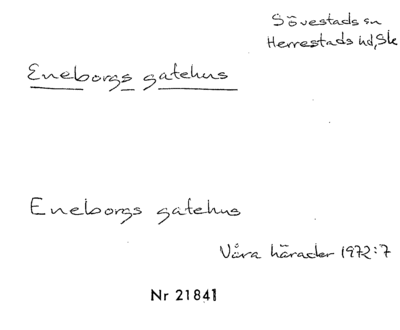 Sövestads sn
Herrestads hd, Sk
Eneborgs gatehus
Eneborgs gatehus
Våra härader 1972:7
Nr 21841